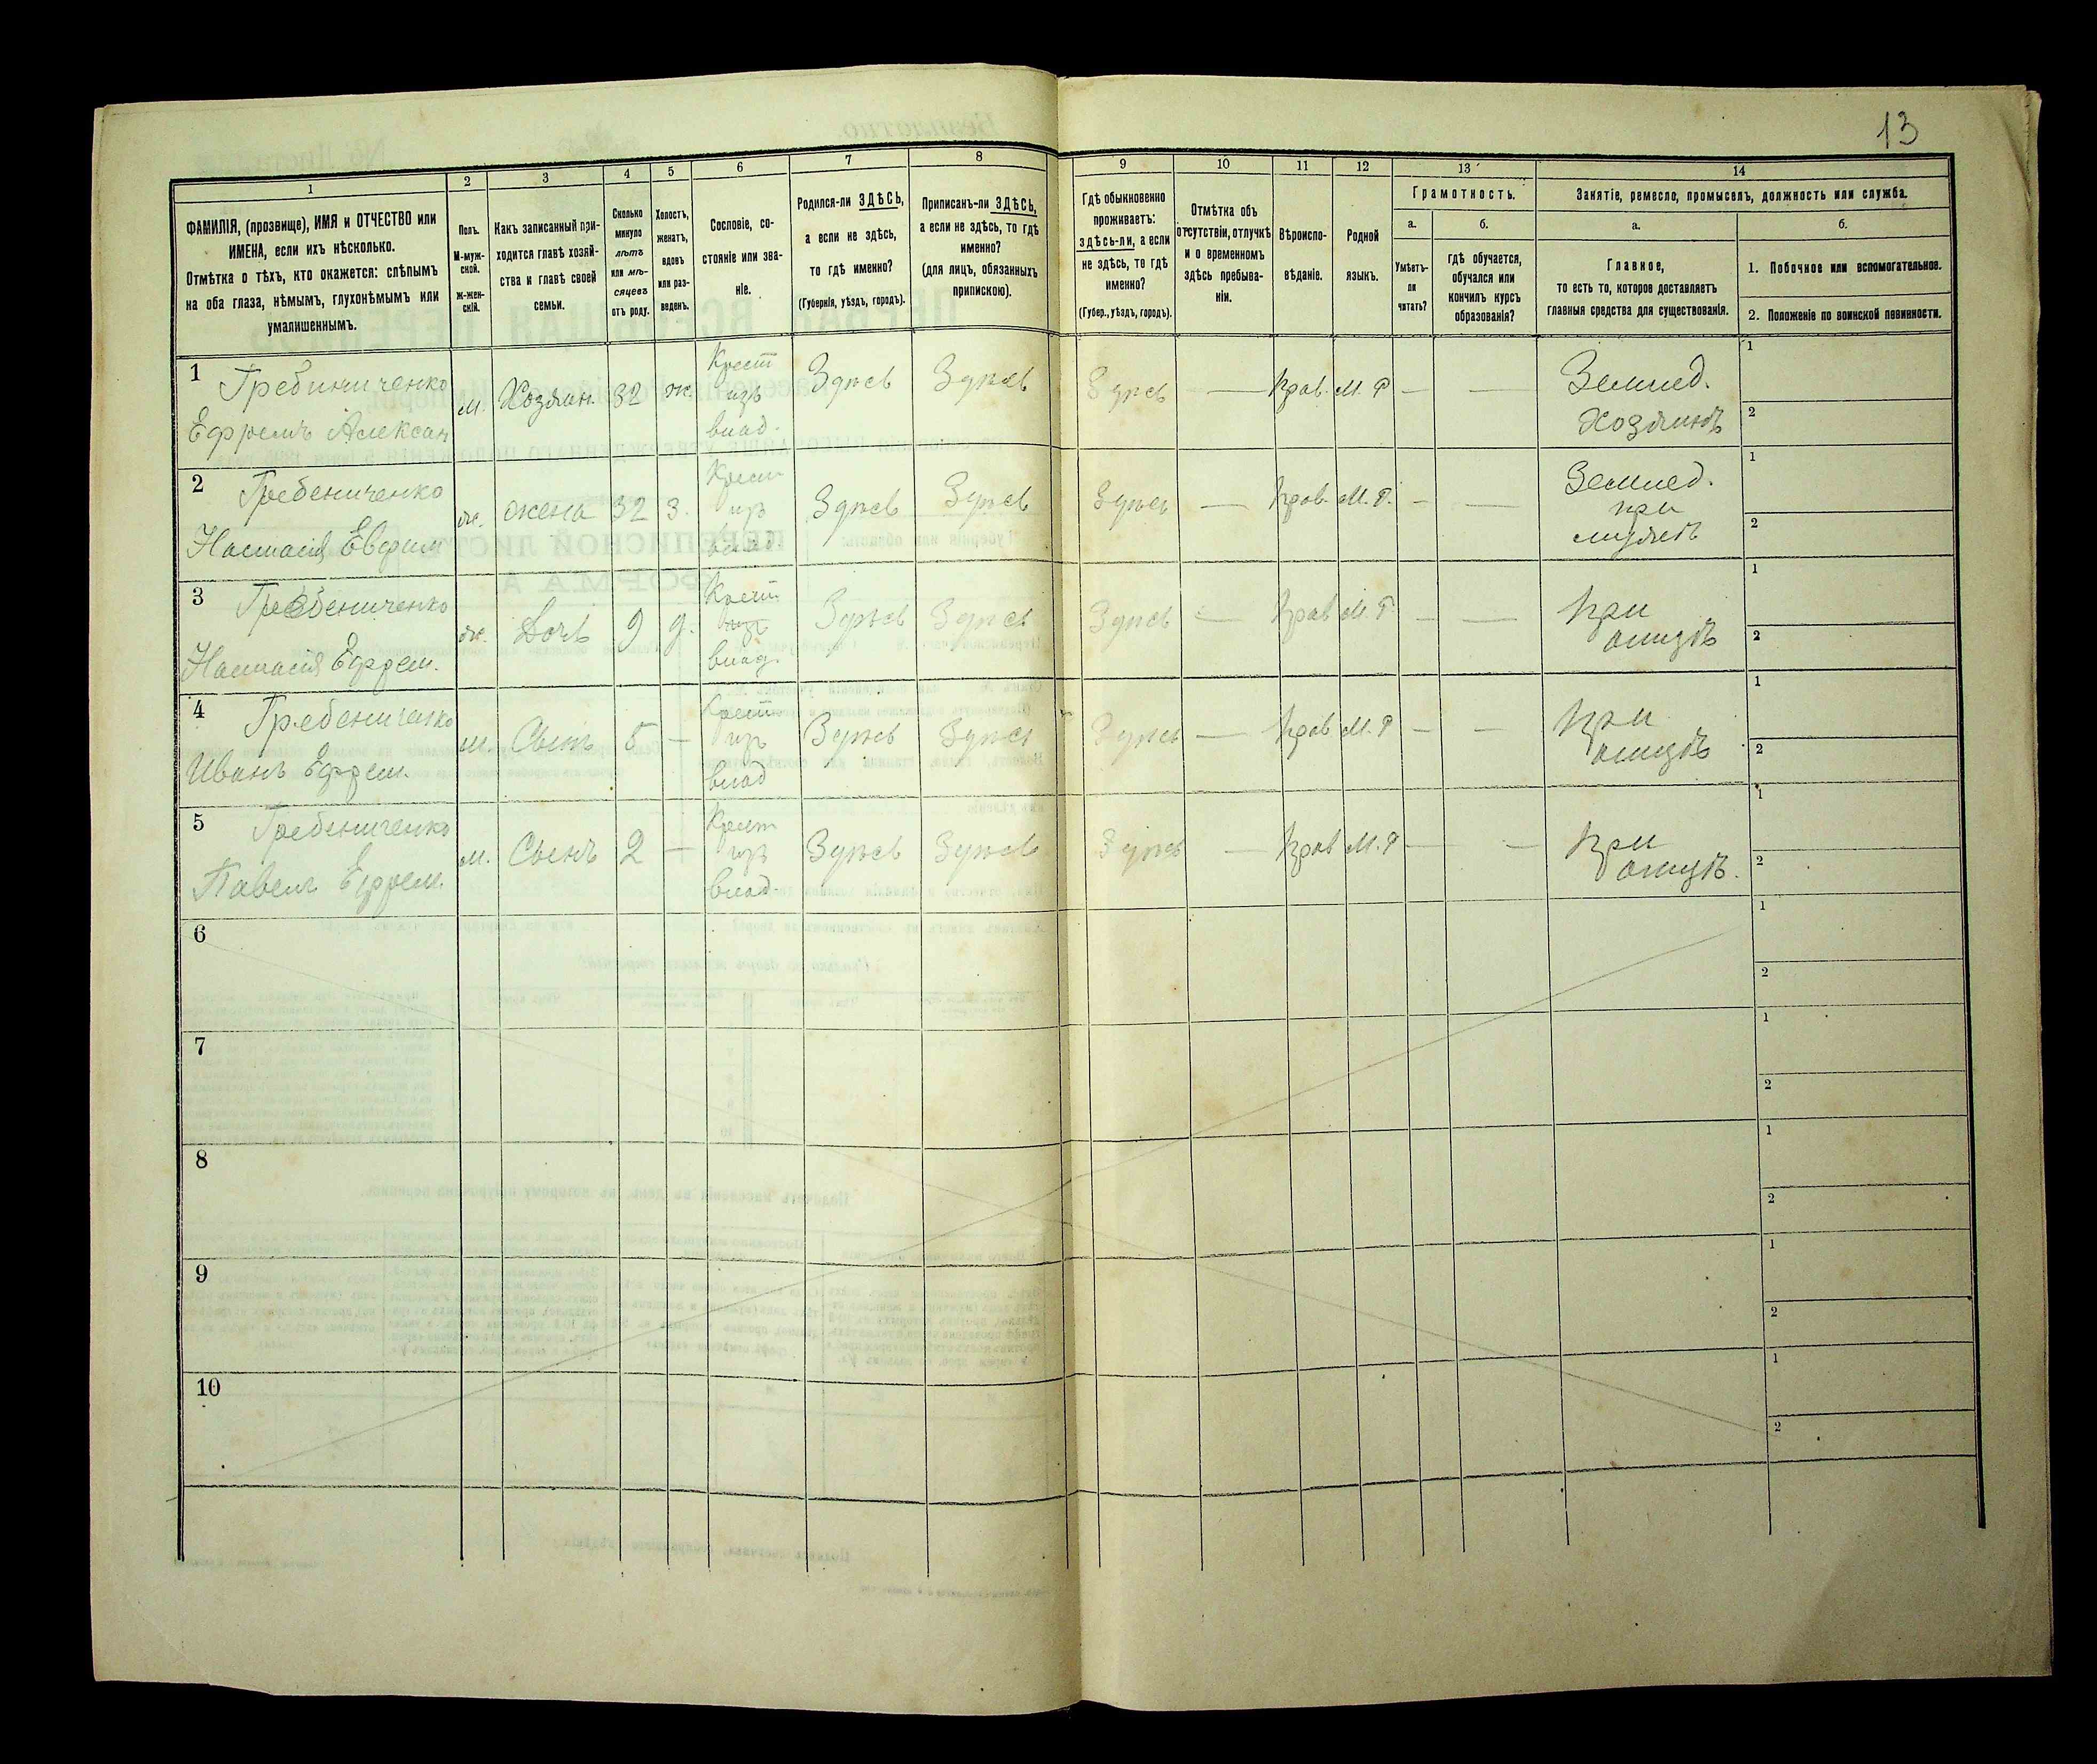 13
1 2 3 4 5 6 7 8 9 10 11 12 13 14
ФАМИЛІЯ, (прозвище), ИМЯ и ОТЧЕСТВО или
ИМЕНА, если ихъ нѣсколько.
Отмѣтка о тѣхъ, кто окажется: слѣпымъ
на оба глаза, нѣмымъ, глухонѣмымъ или
умалишеннымъ.
Полъ.
М-муж-
ской.
ж-жен-
скій.
Какъ записанный при-
ходится главѣ хозяй-
ства и главѣ своей
семьи.
Сколько
минуло
лѣтъ
или мѣ-
сяцевъ
отъ роду.
Холостъ,
женатъ,
вдовъ
или раз-
веденъ.
Сословіе, со-
стояніе или зва-
ніе.
Родился-ли ЗДѢСЬ,
а если не здѣсь,
то гдѣ именно?
(Губернія, уѣздъ, городъ).
Приписанъ-ли ЗДѢСЬ,
а если не здѣсь, то гдѣ
именно?
(для лицъ, обязанныхъ
припискою).
Гдѣ обыкновенно
проживаетъ:
здѣсь-ли, а если
не здѣсь, то гдѣ
именно?
(Губер., уѣздъ, городъ).
Отмѣтка объ
отсутствіи, отлучкѣ
и о временномъ
здѣсь пребыва-
ніи.
Вѣроиспо-
вѣданіе.
Родной
языкъ.
Грамотность.
а.
Умѣетъ-
ли
читать?
б.
гдѣ обучается,
обучался или
кончилъ курсъ
образованія?
Занятіе, ремесло, промыселъ, должность или служба.
а.
Главное,
то есть то, которое доставляетъ
главныя средства для существованія.
б.
1. Побочное или вспомогательное.
2. Положеніе по воинской повинности.
1 Гребиниченко
Ефремъ Алексан
м. Хозяин. 32 ж.
Крест
изъ
влад.
Здѣсь Здѣсь Здѣсь — Прав. М. Р — —
Землед.
Хозяинъ
1
2
2 Гребениченко
Настасія Евфим
ж. жена 32 з.
Крест
изъ
влад.
Здѣсь Здѣсь Здѣсь — Прав. М. Р. — —
Землед.
при
мужѣ
1
2
3 Гребениченко
Настасія Ефрем.
ж. Дочь 9 д.
Крест
изъ
влад.
Здѣсь Здѣсь Здѣсь — Прав М. Р. — —
при
отцѣ
1
2
4 Гребениченко
Иванъ Ефрем.
м. Сынъ 5 —
Крест
изъ
влад
Здѣсь Здѣсь Здѣсь — Прав М. Р — —
при
отцѣ
1
2
5 Гребениченко
Павелъ Ефрем.
м. Сынъ 2 —
Крест
изъ
влад.
Здѣсь Здѣсь Здѣсь — Прав М. Р — —
при
отцѣ.
1
2
6
1
2
7
1
2
8
1
2
9
1
2
10
1
2